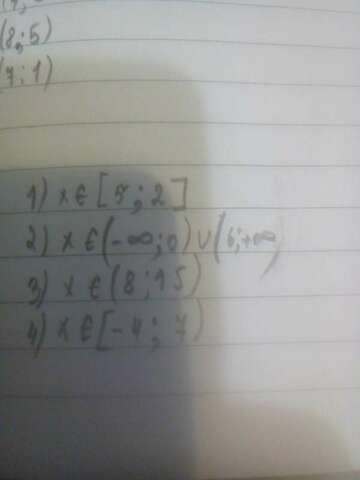 (8;5)
(7;1)
1) x ∈ [5;2]
2) x ∈ (-∞;0) ∪ (6;+∞)
3) x ∈ (8;15)
4) x ∈ [-4;7)